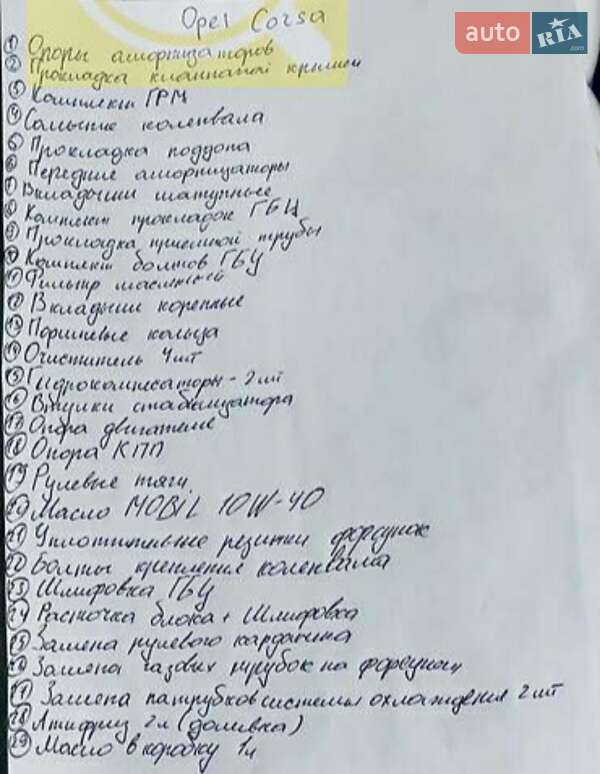 Opel Corsa
auto RIA.com
1 Опоры амортизаторов
2 Прокладка клапанной крышки
3 Комплект ГРМ
4 Сальние коленвала
5 Прокладка поддона
6 Передние амортизаторы
7 Вкладыши шатунные
8 Комплект прокладок ГБЦ
9 Прокладка приемной трубы
10 Комплект болтов ГБЦ
11 Фильтр масляный
12 Вкладыши коренные
13 Поршневые кольца
14 Очиститель 4шт
15 Гидрокомпесаторы - 2шт
16 Втулки стабилизатора
17 Опора двигателя
18 Опора КПП
19 Рулевые тяги
20 Масло MOBiL 10W-40
21 Уплотнительные резинки форсунок
22 Болты крепления коленвала
23 Шлифовка ГБЦ
24 Расточка блока + Шлифовка
25 Замена рулевого карданчика
26 Замена газових трубок на форсунки
27 Замена патрубков системы охлаждения 2шт
28 Атифриз 2л (доливка)
29 Масло в коробку 1л